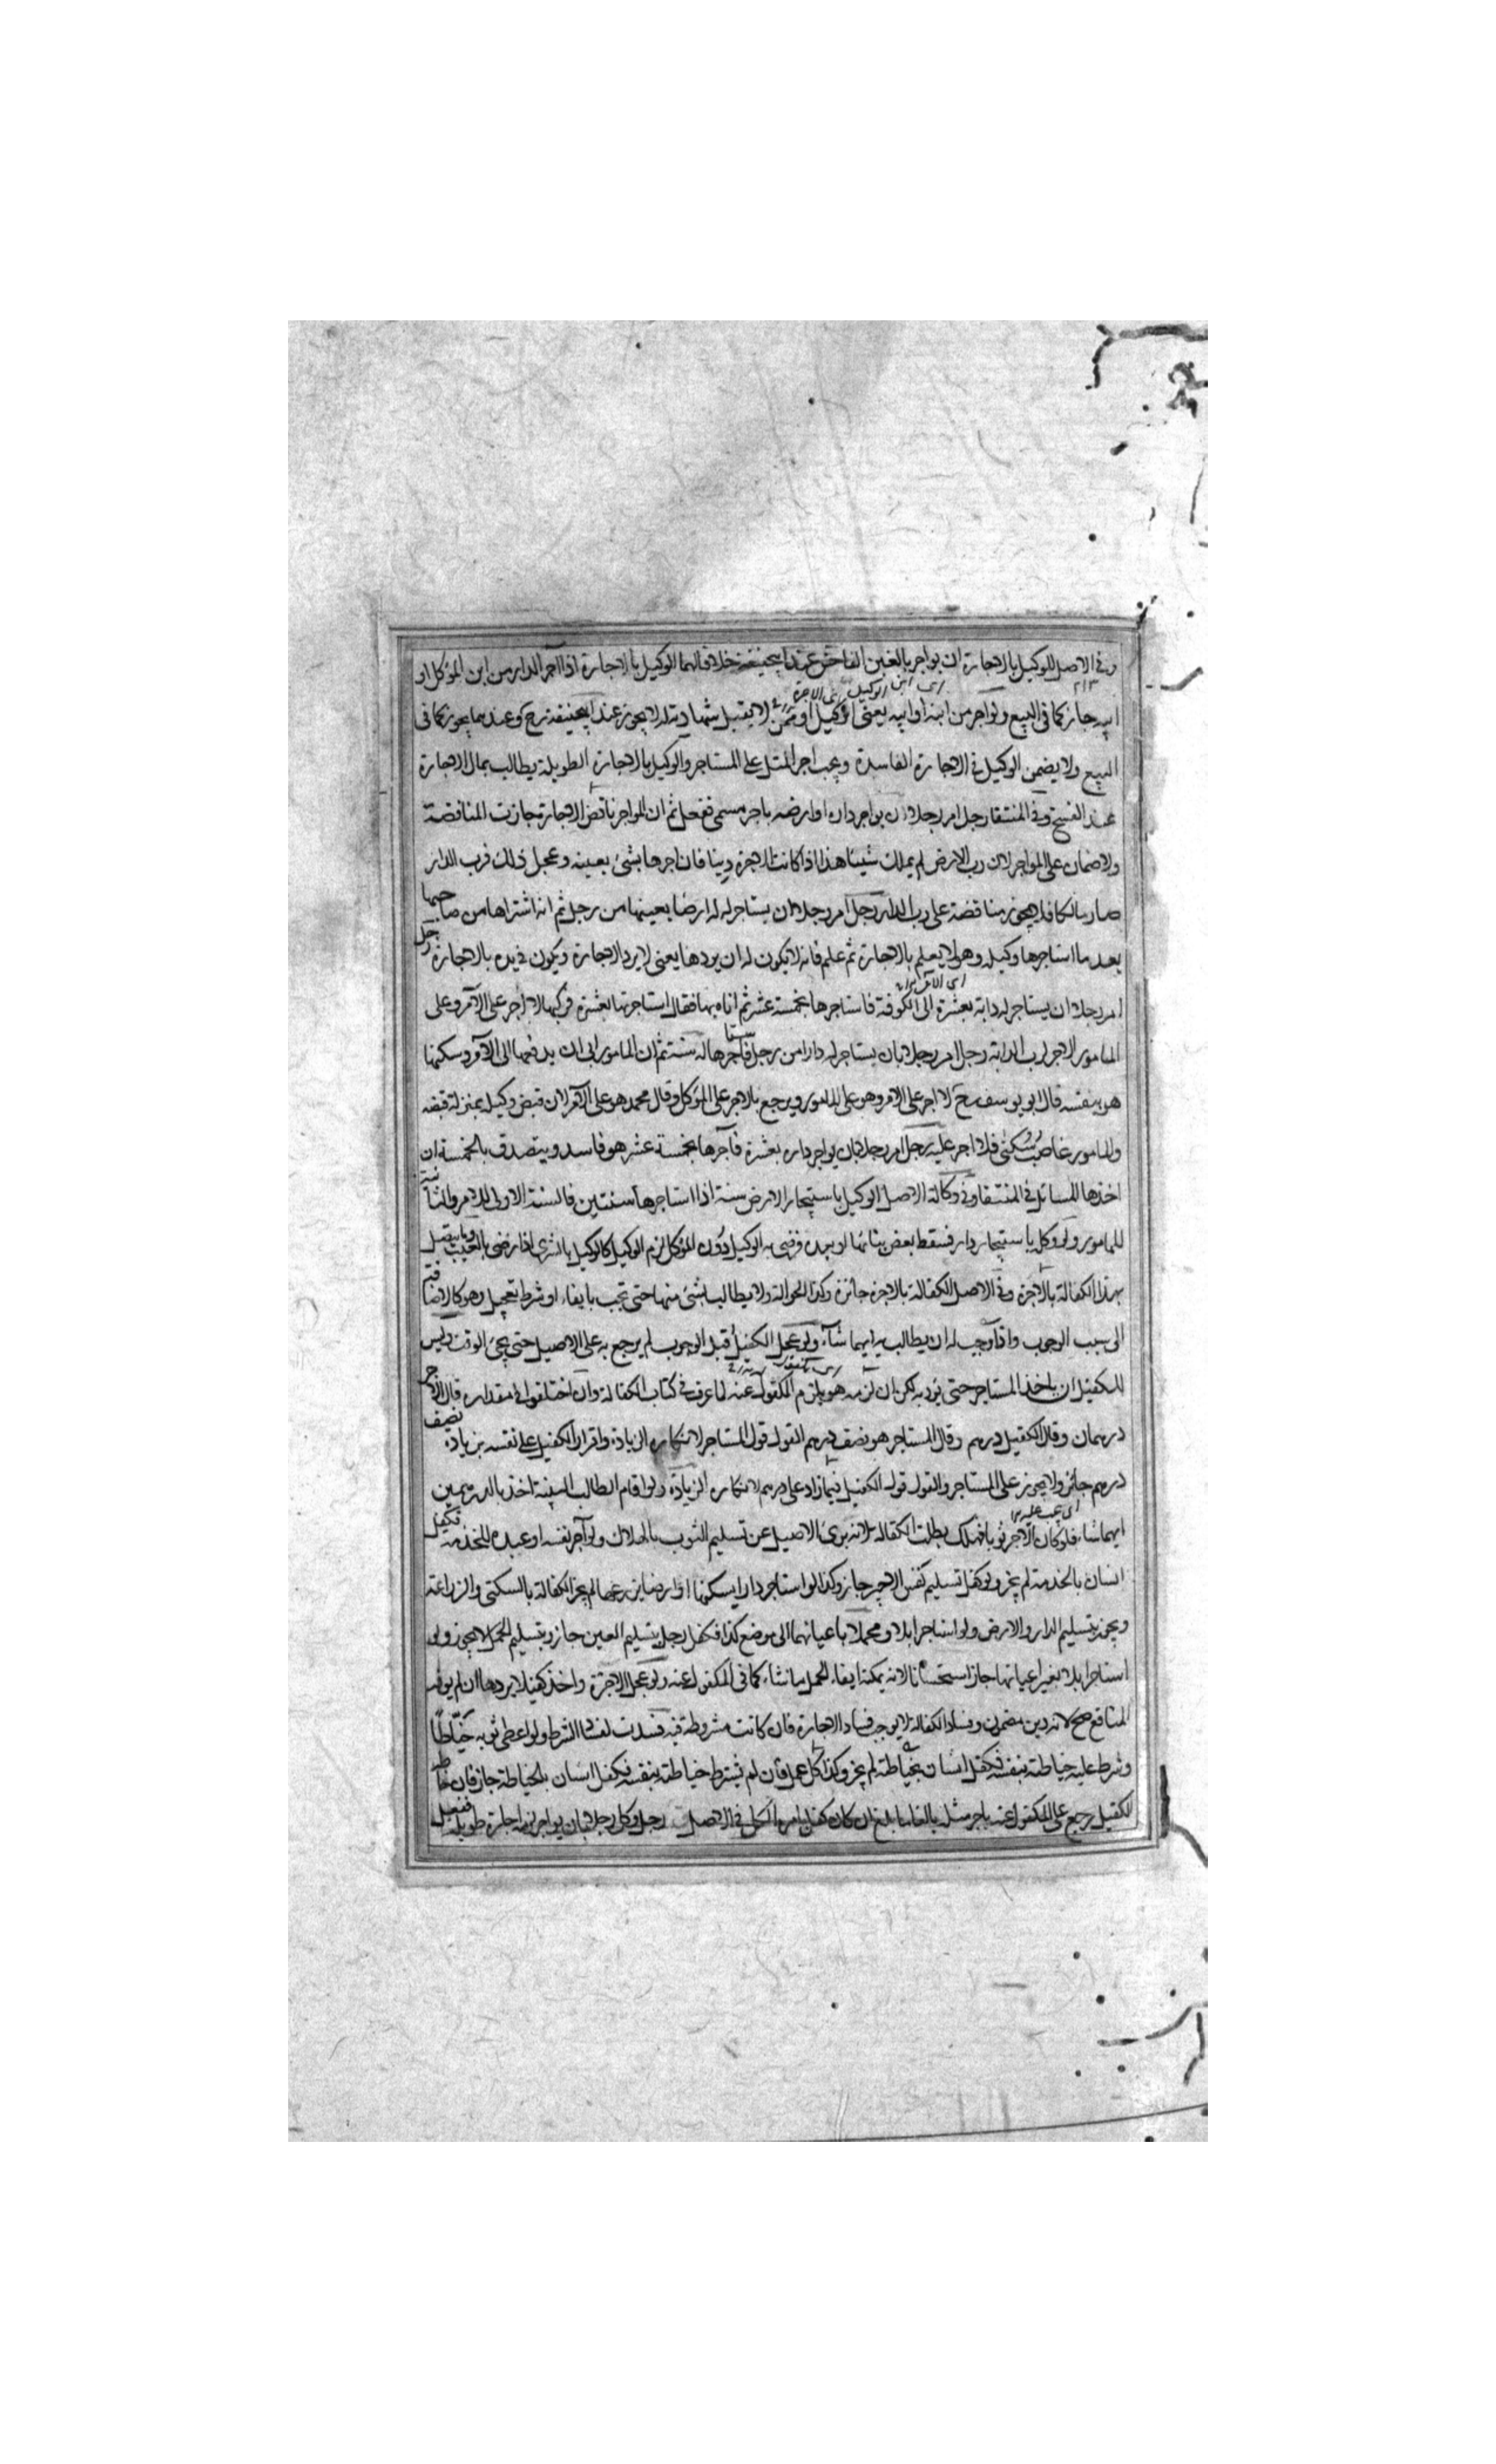 وفي الاصل للوكيل بالاجارة ان يواجر بالغبن الفاحش عند ابيحنيفة خلافا لهما الوكيل بالاجارة اذا آجر الدار من ابن الموكل او
ابيه جاز كما في البيع ولو اجر من ابنه او ابيه يعني الوكيل او ممن لا يقبل شهادته له لا يجوز عند ابيحنيفة رح وعندهما يجوز كما في
البيع ولا يضمن الوكيل في الاجارة الفاسدة ويجب اجر المثل على المستاجر والوكيل بالاجارة الطويلة يطالب بمال الاجارة
عند الفسخ وفي المنتقا رجل امر رجلا ان يواجر داره او ارضه باجر مسمى ففعل ثم ان المواجر ناقض الاجارة جازت المناقضة
ولا ضمان على المواجر لان رب الارض لم يملك شيئا هذا اذا كانت الاجرة دينا فان اجرها بشئ بعينه وعجل ذلك فرب الدار
صار مالكا فلا يجوز مناقضة على رب الدار رجل امر رجلا ان يستاجر له ارضا بعينها من رجل ثم انه اشتراها من صاحبها
بعد ما استاجرها وكيله وهو لا يعلم بالاجارة ثم علم فانه لا يكون له ان يردها يعني لا يرد الاجارة ويكون في يده بالاجارة رجل
امر رجلا ان يستاجر له دابة بعشرة الى الكوفة فاستاجرها بخمسة عشر ثم اتاه بها فقال استاجرتها بعشرة فركبها لا اجر على الآمر وعلى
المامور الاجر لرب الدابة رجل امر رجلا بان يستاجر له دارا من رجل فآجرها له سنة ثم ان المامور ابى ان يدفعها الى الآمر وسكنها
هو بنفسه قال ابو يوسف رح لا اجر على الامر وهو على المامور ويرجع بالاجر على الموكل وقال محمد هو على الآمر لان قبض وكيله بمنزلة قبضه
والمامور غاصب سكنى فلا اجر عليه رجل امر رجلا بان يواجر داره بعشرة فآجرها بخمسة عشر هو فاسد ويتصدق بالخمسة ان
اخذها المسائل في المنتقا وفي وكالة الاصل الوكيل باستيجار الارض سنة اذا استاجرها سنتين فالسنة الاولى للامر والثانية
للمامور ولو وكل باستيجار دار فسقط بعض بنائها او بعده ورضي به الوكيل دون الموكل لزم الوكيل كالوكيل بالشرى اذا رضي بالعيب وما يتصل
بهذا الكفالة بالاجرة وفي الاصل الكفالة بالاجرة جائزة وكذا الحوالة ولا يطالب بشئ منها حتى تجب بايفاء او شرط تعجيل وهو كالاضافة
الى سبب الوجوب واذا وجب له ان يطالب به ايهما شآء ولو عجل الكفيل قبل الوجوب لم يرجع به على الاصيل حتى يجئ الوقت وليس
للكفيل ان ياخذ المستاجر حتى يؤديه لكن ان لزمه هو يلزم المكفول عنه لما عرف في كتاب الكفالة وان اختلفوا في مقداره قال الاجر
درهمان وقال الكفيل درهم وقال المستاجر هو نصف درهم القول قول المستاجر لانكاره الزيادة واقرار الكفيل على نفسه بزيادة نصف
درهم جائز ولا يجوز على المستاجر والقول قول الكفيل فيما زاد على درهم لانكاره الزيادة ولو اقام الطالب البينة اخذ بالدرهمين
ايهما شاء فلو كان الاجر ثوبا فهلك بطلت الكفالة لانه برئ الاصيل عن تسليم الثوب بالهلاك ولو آجر نفسه او عبده للخدمة فكفل
انسان بالخدمة لم يجز ولو كفل تسليم نفس الاجير جاز وكذا لو استاجر دارا يسكنها او ارضا يزرعها لم يجز الكفالة بالسكنى والزراعة
ويجوز بتسليم الدار والارض ولو استاجر ابلا ومحملا باعيانهما الى موضع كذا فكفل رجل بتسليم العين جاز وبتسليم الحمل لا يجوز ولو
استاجر ابلا بغير اعيانها جاز استحسانا لانه يمكنه ايفاء الحمل بما شاء كما في المكفول عنه ولو عجل الاجرة واخذ كفيلا بردها ان لم يوف
المنافع صح لانه دين مضمون وفساد الكفالة لا يوجب فساد الاجارة فان كانت مشروطة فيه فسدت لفساد الشرط ولو اعطى ثوبه خياطا
وشرط عليه خياطته بنفسه فكفل انسان بخياطته لم يجز وكذا كل عمل فان لم يشترط خياطته بنفسه فكفل انسان بالخياطة جاز فان خاطه
الكفيل رجع على المكفول عنه باجر مثله بالغا ما بلغ ان كان كفل بامره الكل في الاصل رجل وكل رجلا بان يواجر اجارة طويلة ففعل